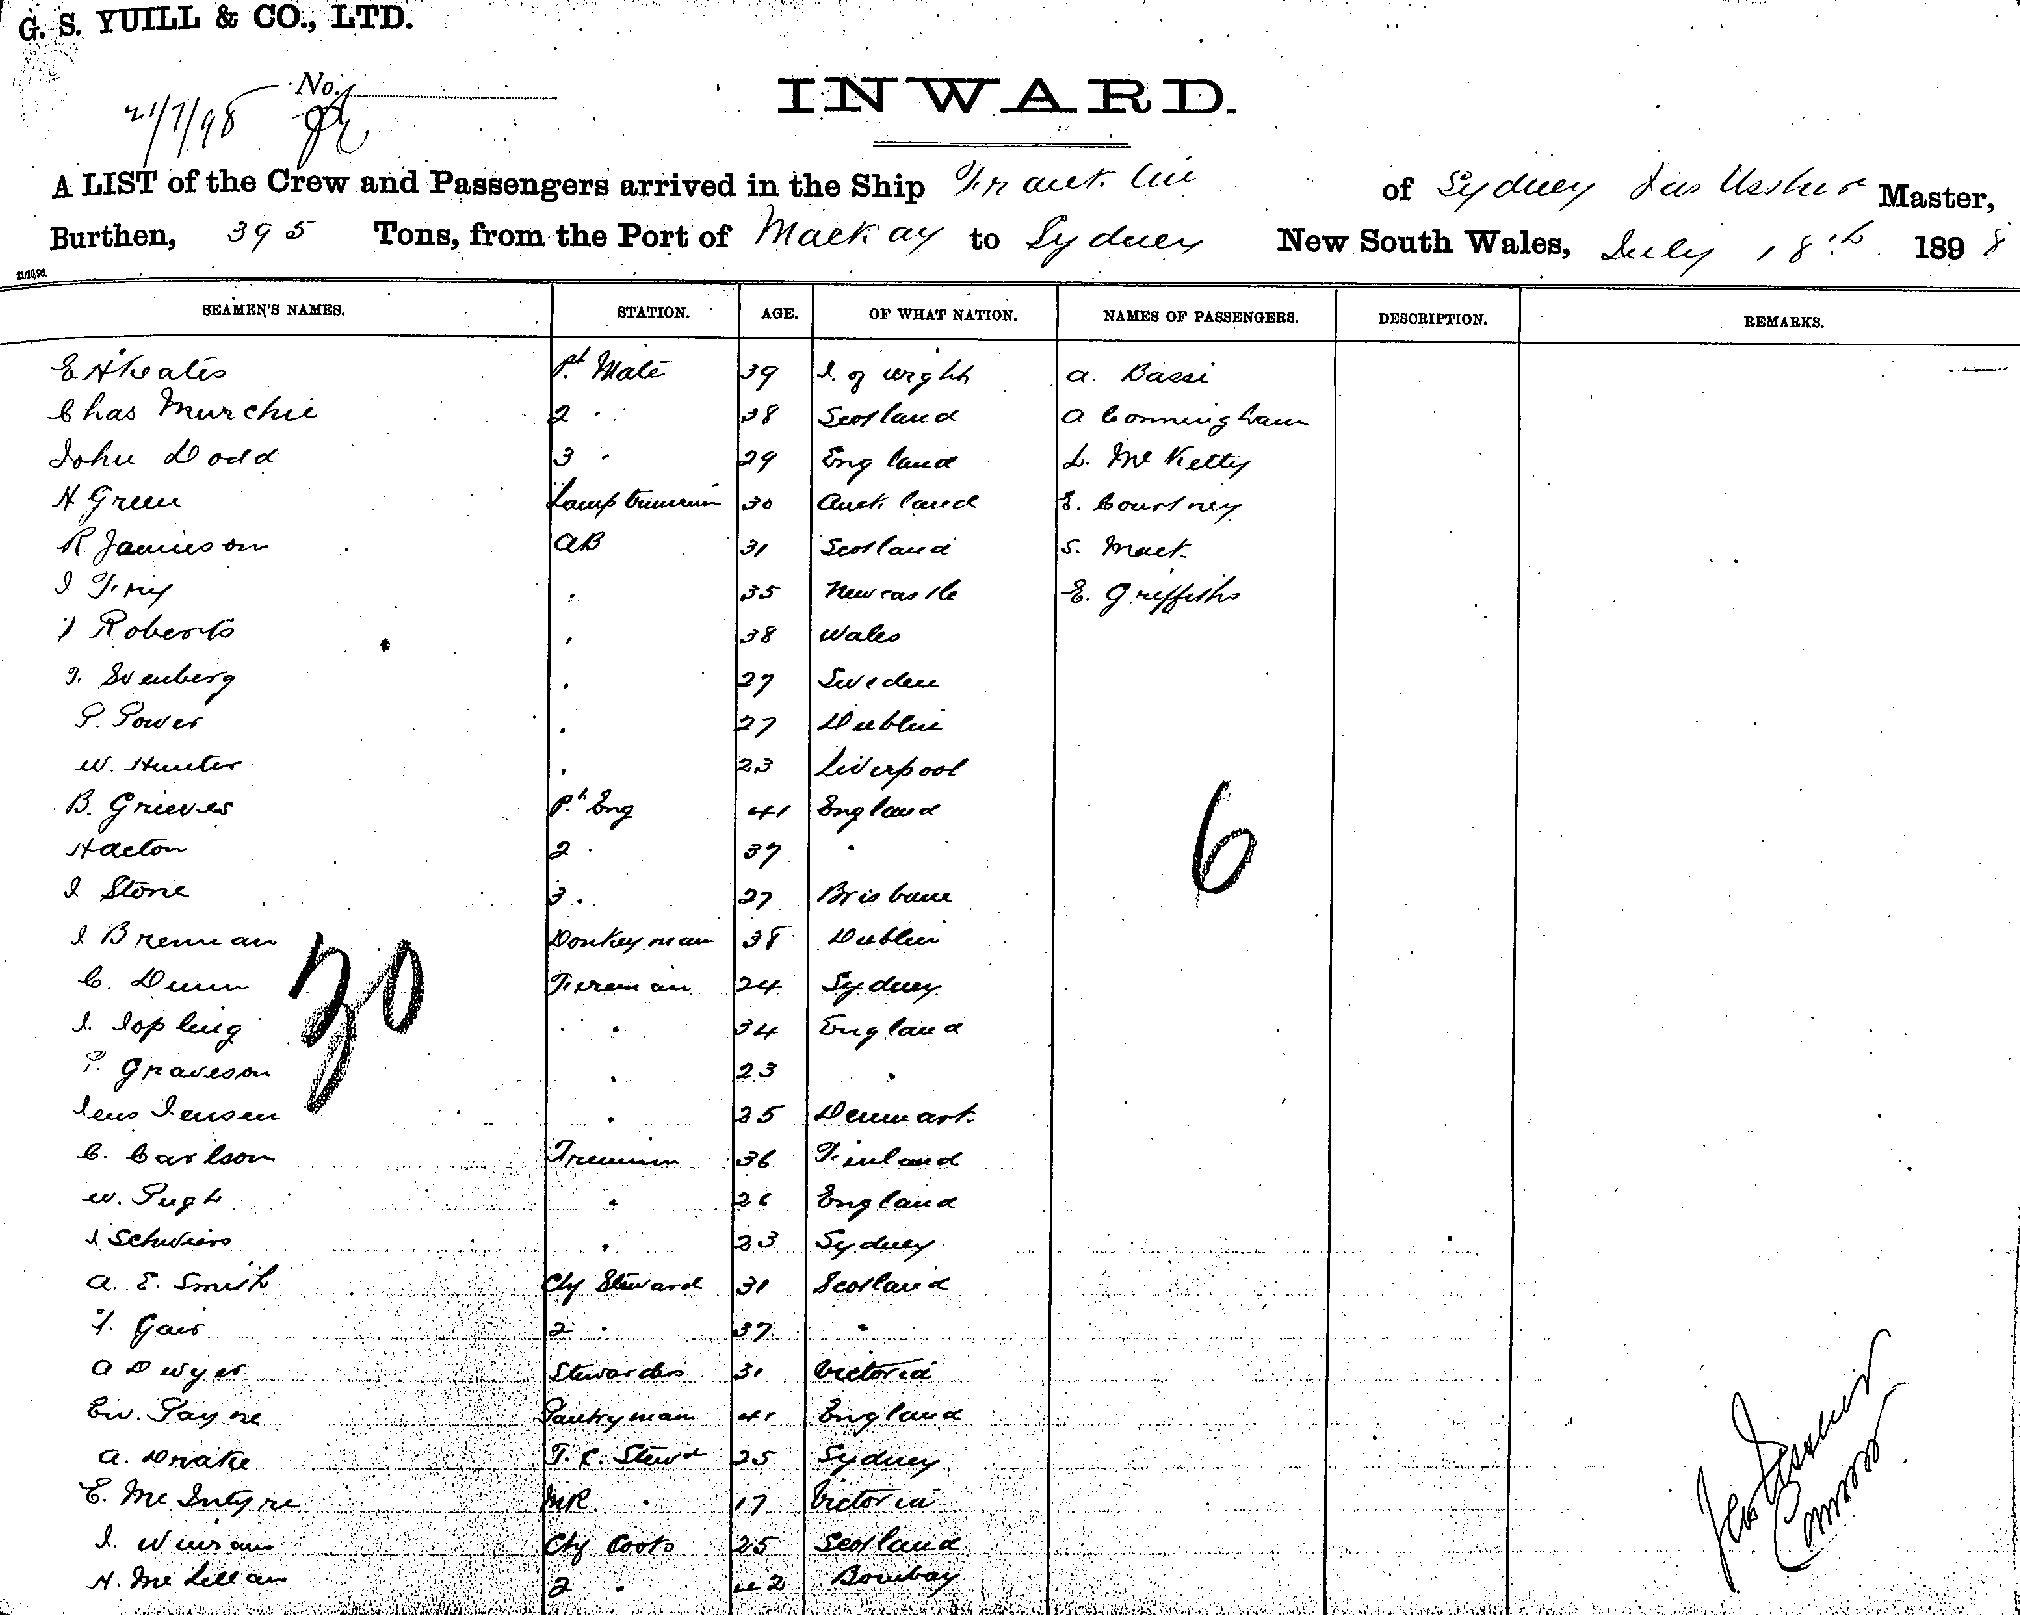 G. S. YUILL & CO., LTD.
No.
21/7/98
INWARD.
A LIST of the Crew and Passengers arrived in the Ship Franklin of Sydney Jas Ussher Master,
Burthen, 395 Tons, from the Port of Mackay to Sydney New South Wales, July 18th 1898
SEAMEN'S NAMES. STATION. AGE. OF WHAT NATION. NAMES OF PASSENGERS. DESCRIPTION. REMARKS.
E H Keates 1st Mate 39 I. of Wight A. Bassi
Chas Murchie 2 " 38 Scotland A Conningham
John Dodd 3 " 29 England L. McKetty
H Green Lamptrimmer 30 Auckland E. Courtney
R Jamieson AB 31 Scotland S. Mack
J Fry " 35 Newcastle E. Griffiths
J Roberts " 38 Wales
J. Svenberg " 27 Sweden
P. Power " 27 Dublin
W. Hunter " 23 Liverpool
B. Grieves 1st Eng 41 England
H Acton 2 " 37 "
J Stone 3 " 27 Brisbane
J Brennan Donkeyman 38 Dublin
C. Dunn Fireman 24 Sydney
J. Jopling " 34 England
T. Graveson " 23 "
Jens Jensen " 25 Denmark
C. Carlson Trimmer 36 Finland
W. Pugh " 26 England
J Schviers " 23 Sydney
A. E. Smith Chf Steward 31 Scotland
J. Gair 2 " 37 "
A Dwyer Stewardess 31 Victoria
E W. Payne Pantryman 41 England
A. Drake F. C. Stewd 25 Sydney
E. McIntyre MR " 17 Victoria
J. Chf Cook 25 Scotland
H. McLellan 2 " 42 Bombay
30
6
Jas Ussher